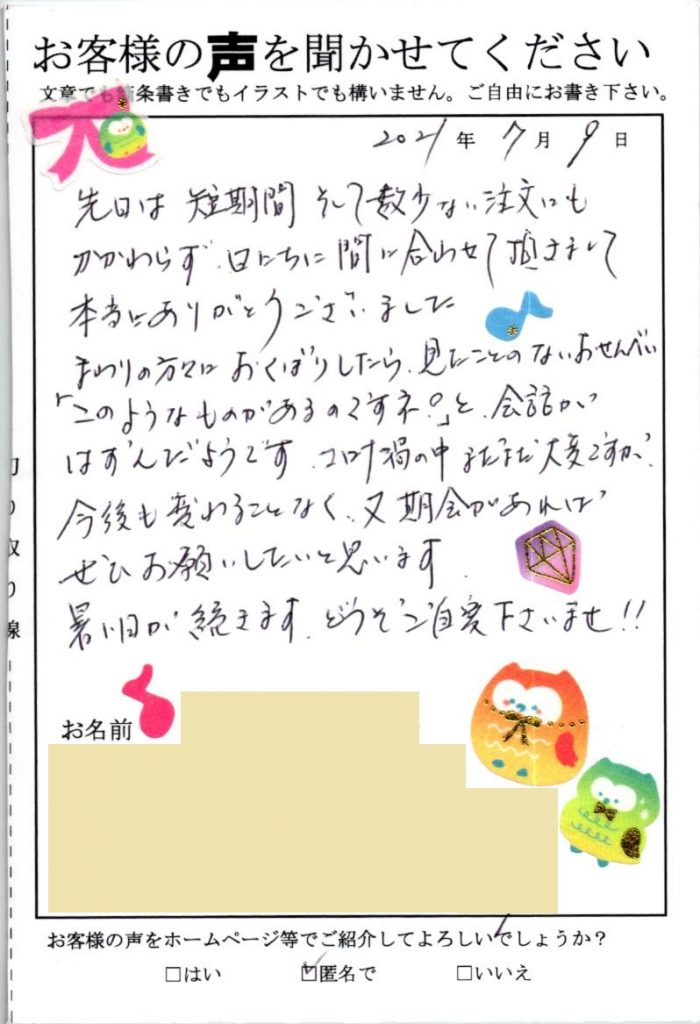 お客様の声を聞かせてください
文章でも箇条書きでもイラストでも構いません。ご自由にお書き下さい。
2021年7月9日
先日は 短期間 そして数少ない注文にも
かかわらず、日にちに間に合わせて頂きまして
本当にありがとうございました
まわりの方々に おくばりしたら、見たことのないおせんべい
「このようなものがあるのですネ?」と、会話が
はずんだようです、コロナ禍の中 まだまだ大変ですが、
今後も変わることなく、又期会があれば
ぜひお願いしたいと思います
暑い日が続きます、どうぞご自愛下さいませ!!
お名前
お客様の声をホームページ等でご紹介してよろしいでしょうか?
□はい ☑匿名で □いいえ
切り取り線